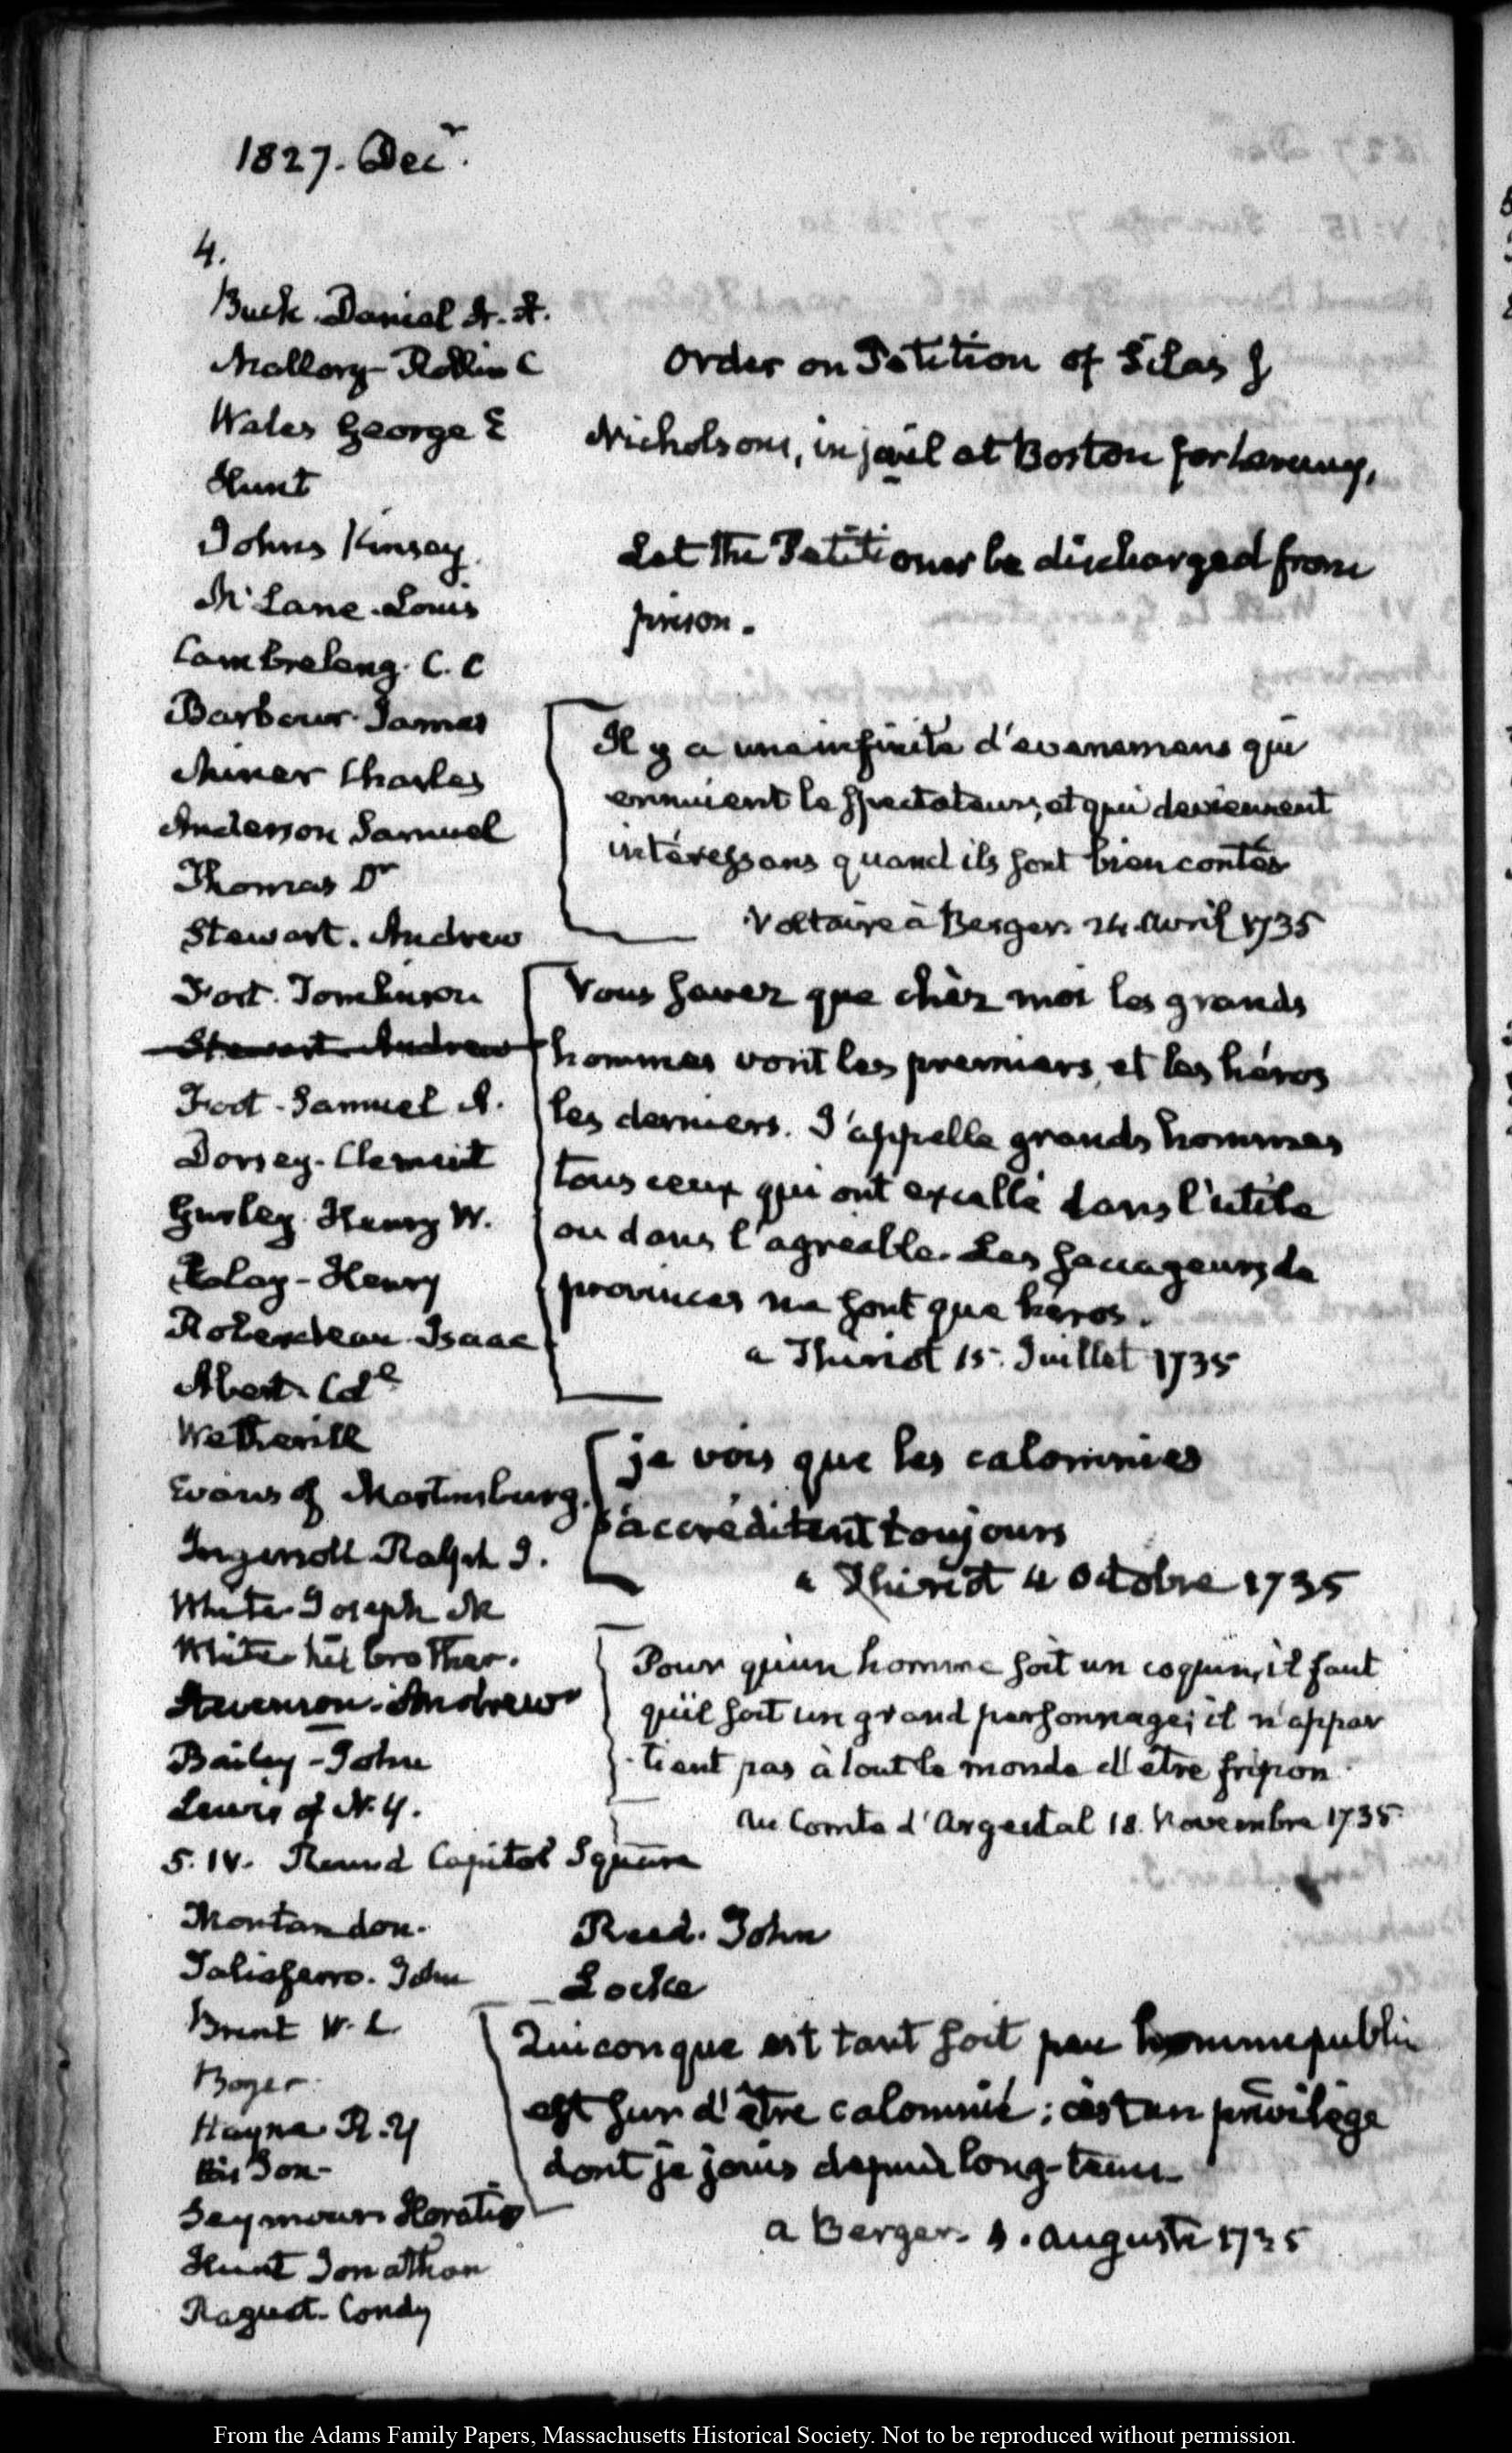 1827. Decr.
4.
Buck Daniel A. A.
Mallary- Rollin C
Wales George E
Hunt
Johns Kinsey
McLane. Louis
Cambreleng. C. C
Barbour James
Miner Charles
Anderson Samuel
Thomas Dr
Stewart. Andrew
Fort. Tomlinson
Stewart Andrew
Foot. Samuel A.
Dorsey. Clement
Gurley. Henry W.
Henry
Roberdeau Isaac
Abert. Col
Wetherill
Evans of Martinsburg.
Ingersoll Ralph I.
White Joseph M
White his brother.
Stevenson. Andrew
Bailey - John
Lewis of N. Y.
5. IV. Round Capitol Square
Montandon.
Taliaferro. John
Brent W. L.
Boyer
Hayne R. Y
His Son.
Seymour Horatio
Hunt Jonathan
Raguet. Condy
Order on Petition of Silas J
Nicholson, in jail at Boston for Larceny,
Let the Petitioner be discharged from
prison.
Il y a une infinité d'evenemens qui
ennuient le spectateur, et qui deviennent
intéressans quand ils sont bien contés
Voltaire à Berger 24. Avril 1735
Vous savez que chèz moi les grands
hommes vont les premiers, et les héros
les derniers. J'appelle grands hommes
tous ceux qui ont excellé dans l'utile
ou dans l'agréable. Les saccageurs de
provinces ne sont que héros.
a Thiriot 15. Juillet 1735
je vois que les calomnies
s'accréditent toujours
a Thiriot 4 Octobre 1735
Pour qu'un homme soit un coquin, il faut
qu'il soit un grand personnage; il n'appar
-tient pas à tout le monde d'etre fripon.
Au Comte d'Argental 18. Novembre 1735
Reed. John
Locke
Quiconque est tant soit peu homme public
est sur d'être calomnié; c'est un privilège
dont je jouis depuis long-tems
a Berger. Auguste 1735
From the Adams Family Papers, Massachusetts Historical Society. Not to be reproduced without permission.